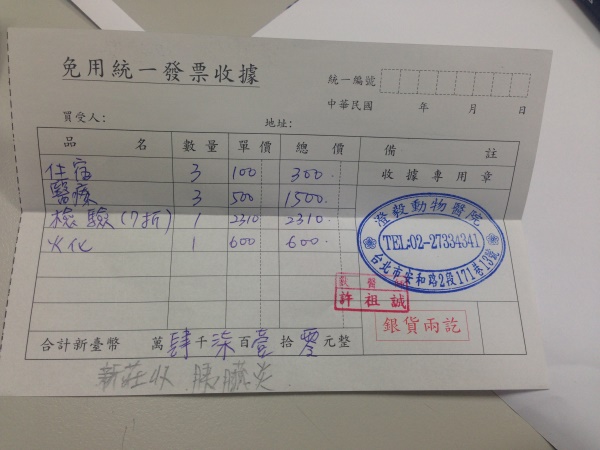 免用統一發票收據
統一編號
中華民國 年 月 日
買受人: 地址:
品名 數量 單價 總價 備註
住宿 3 100 300. 收據專用章
醫療 3 500 1500.
檢驗(7折) 1 2310 2310.
火化 1 600 600.
澄毅動物醫院
TEL:02-27334341
台北市安和路2段171巷13號
獸醫師
許祖誠
銀貨兩訖
合計新臺幣 萬肆千柒百壹拾零元整
新莊收 胰臟炎